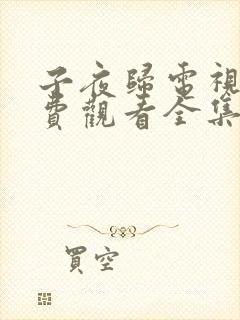 子夜歸電視
費觀看全集
買空